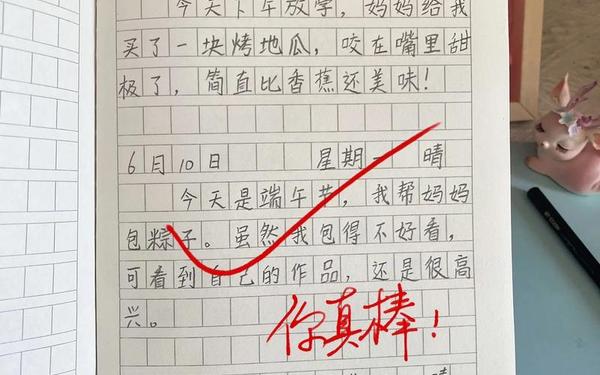 今天下午放学，妈妈给我
买了一块烤地瓜，咬在嘴里甜
极了，简直比香蕉还美味！
6月10日 星期一 晴
今天是端午节，我帮妈妈
包粽子。虽然我包得不好看，
可看到自己的作品，还是很高
兴。
你真棒！
晴